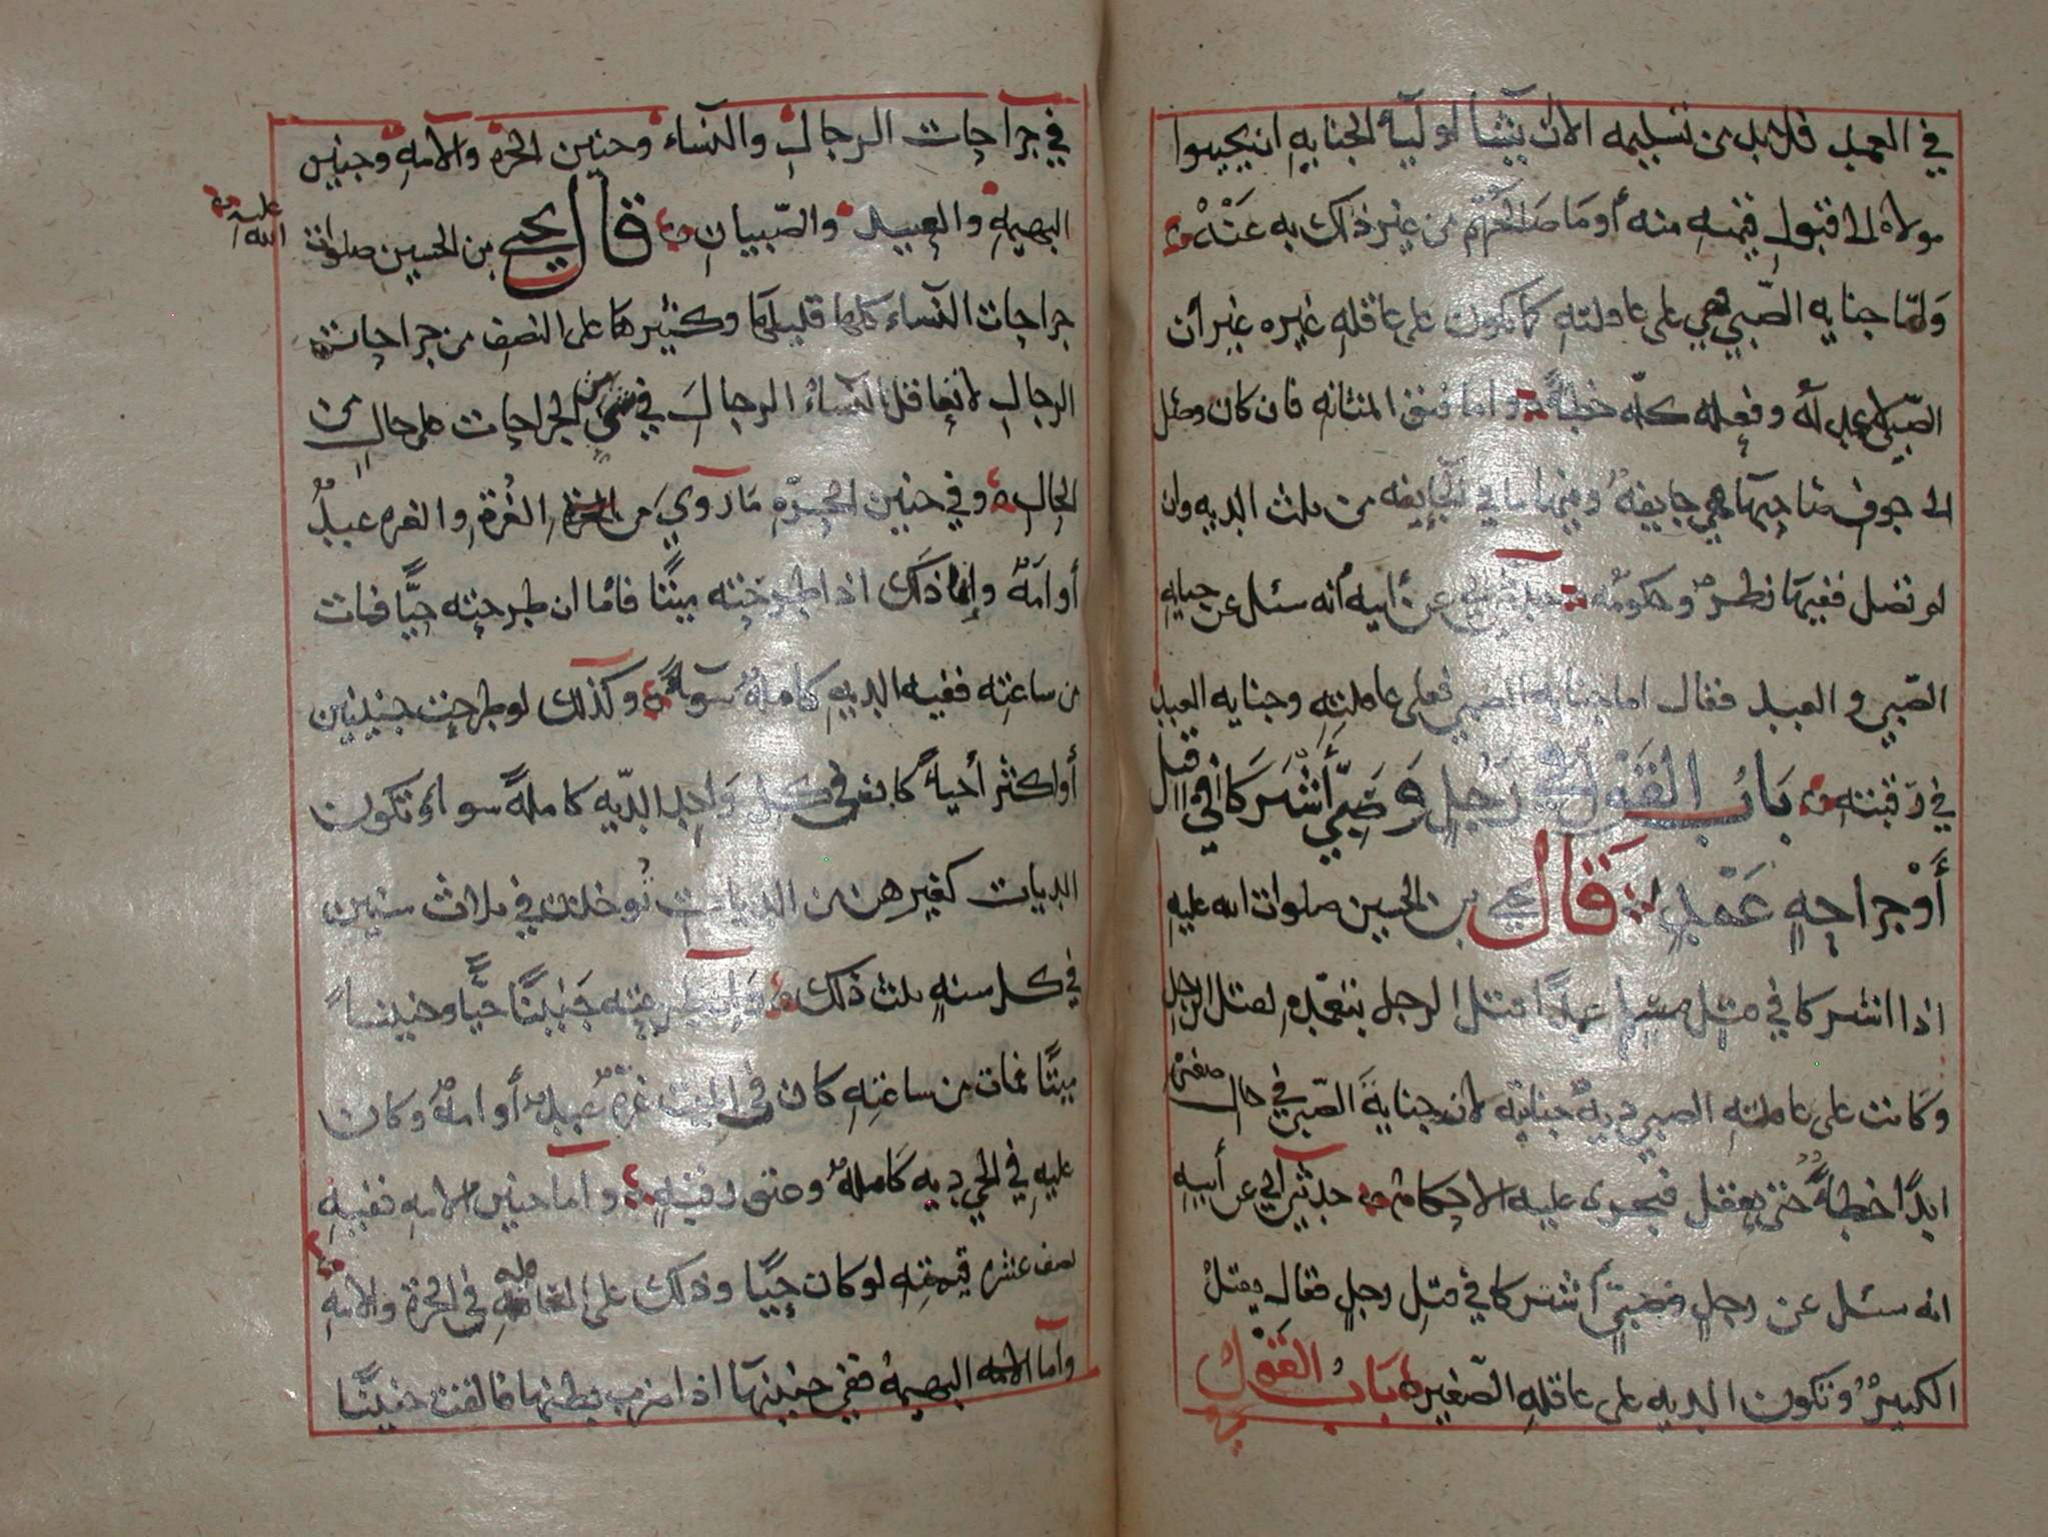 في العمد فلا بد من تسليمه الا ان يشا اوليآء الجنايه ان يجيبوا
مولاه الى قبول قيمته منه أو ما صالحهم من غير ذلك به عنه
وأمّا جنايه الصّبي فهي على عاقلته كما تكون على عاقله غيره غير أن
الصّبي لا عمد له وفعله كلّه خطأ واما فتق المثانه فان كان وصل
الى جوف صاحبها فهي جايفه وفيها ما في الجايفه من ثلث الديه وان
لم تصل ففيها نظر وحكومه عن أبيه أنه سئل عن جنايه
الصّبي والعبد فقال اما جنايه الصبي فعلى عاقلته وجنايه العبد
في رقبته باب القول في رجل وصبيّ أشتركا في قتل
أو جراحه عمد قال يحيى بن الحسين صلوات الله عليه
اذا اشتركا في قتل مسلم عمدًا قتل الرجل بتعمده لقتل الرجل
وكانت على عاقلته الصبي ديه جنايته لان جناية الصّبي في حال صغره
ابدًا خطأ حتى يعقل فتجرى عليه الاحكام حدثني أبي عن أبيه
انه سئل عن رجل وصبيّ أشتركا في قتل رجل فقال يقتل
الكبير وتكون الديه على عاقله الصّغير باب القول
في جراحات الرجال والنسآء وجنين الحره والامه وجنين
البهيمه والعبيد والصّبيان قال يحيى بن الحسين صلوات الله عليه
جراحات النسآء كلها قليلها وكثيرها على النصف من جراحات
الرجال لا تعاقل النسآء الرجال في شي من الجراحات على حال من
الحال وفي جنين الحرّه ما روي من الغرة والغره عبد
أو امة وإنما ذلك اذا طرحته ميتًا فاما ان طرحته حيًّا فمات
من ساعته ففيه الديه كاملة سوآء وكذلك لو طرحت جنينين
أو اكثر أحيآء كان في كل واحد الدّيه كاملة سوا وتكون
الديات كغيرهن من الديات توخذ في ثلاث سنين
في كل سنه ثلث ذلك وان طرحته جنينًا حيًّا وجنينًا
ميتًا فمات من ساعته كان في الميت غرة عبد أو امة وكان
عليه في الحي ديه كاملة وعتق رقبه وأما جنين الامه ففيه
نصف عشر قيمته لو كان حيًّا وذلك على العاقله في الحرة والامه
وأما البهيمه ففي جنينها اذا ضرب بطنها فالقت جنينًا